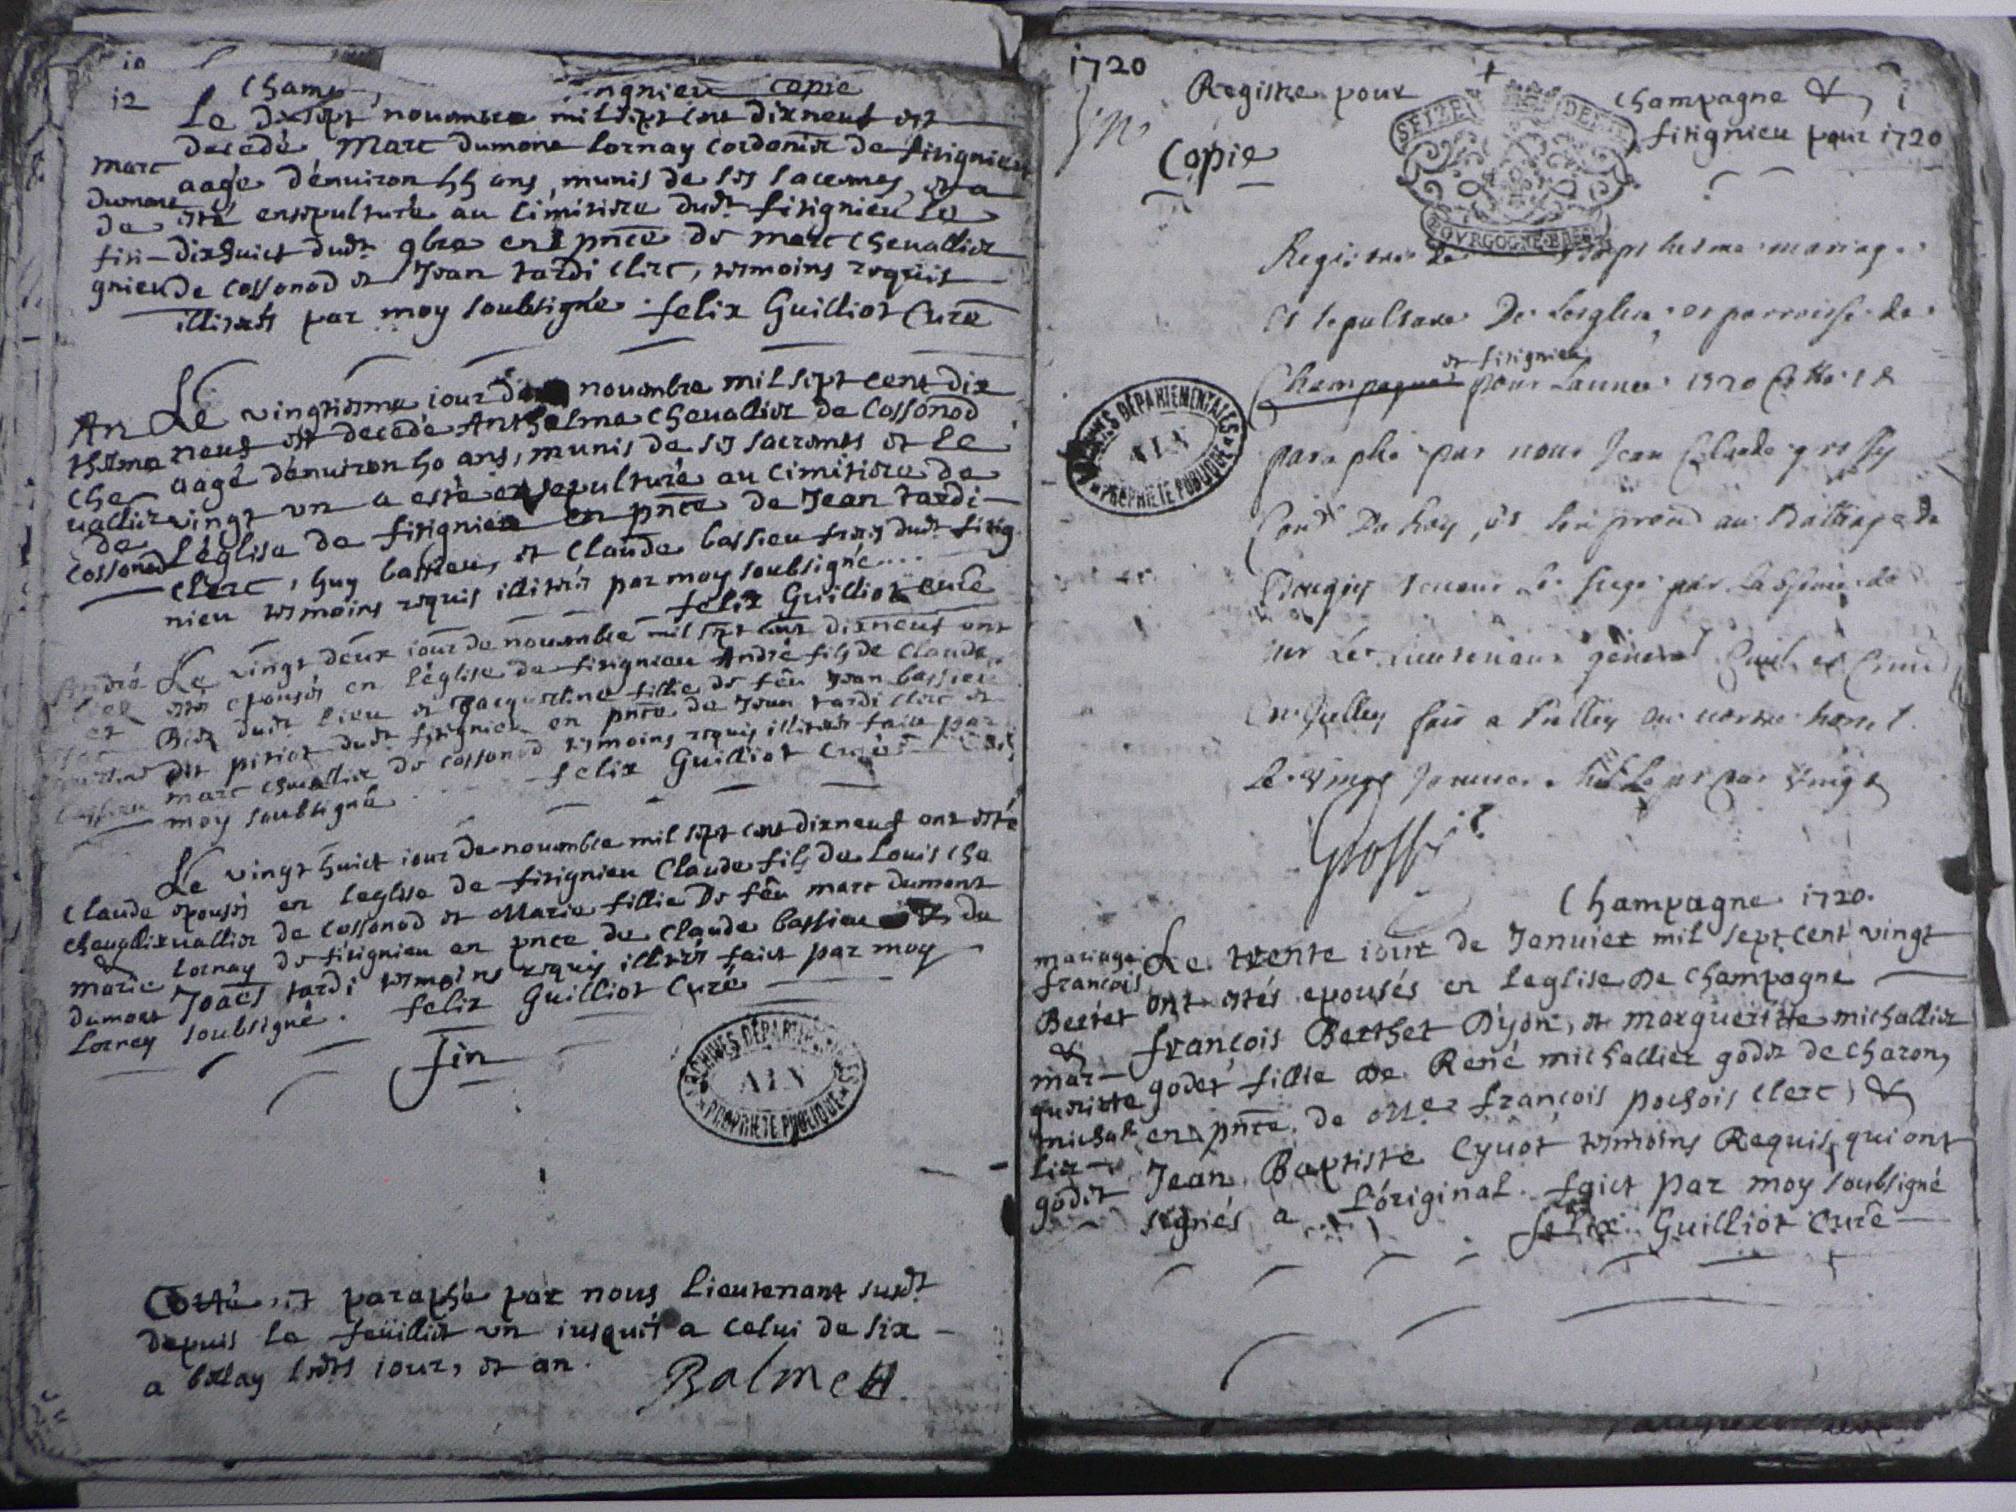 10
12
Champ
ngnieu copie
Le dixsept nouembre mil sept cent dixneuf est
decedé Marc dumont Lornay cordonier de fitignieu
aagé d'enuiron 55 ans, munis de ses sacremes, et a
esté ensepulturé au cimitiere dudt fitignieu le
dixhuict dudt 9bre en pnce de marc cheuallier
de Cossonod et Jean tardi clerc, temoins requis
illiterés par moy soubsigné felix Guilliot Curé
marc
dumont
de
fiti-
gnieu
Le vingtieme iour de nouembre mil sept cent dix
neuf est decedé Anthelme cheuallier de Cossonod
aagé d'enuiron 50 ans, munis de ses sacremts et le
vingt vn a esté ensepulturé au cimitiere de
l'église de fitignieu en pnce de Jean tardi
clerc, huy bassieu, et Claude bassieu dudt fitig
nieu temoins requis illiterés par moy soubsigné
felix Guilliot curé
An
thelme
che
uallier
de
Cossonod
Le vingt deux iour de nouembre mil sept cent dixneuf ont
estés epousés en l'église de fitignieu André fils de Claude
Biez dudt lieu et Jacqueline fillie de feu Jean bassieu
dit dudt fitignieu en pnce de Jean tardi clerc et
marc cheuallier de cossonod temoins requis illiterés faict par
moy soubsigné felix Guilliot Curé
André
et
bassieu
Le vingt huict iour de nouembre mil sept cent dixneuf ont esté
epousés en leglise de fitignieu Claude fils de Louis che
uallier de Cossonod et Marie fillie de feu marc dumont
Lornay de fitignieu en pnce de Claude bassieu et de
Joaes tardi temoins requis illiterés faict par moy
soubsigné. felix Guilliot Curé
Claude
cheuallier
&
marie
dumont
Lornay
fin
ARCHIVES DÉPARTEMENTALES
AIN
PROPRIÉTÉ PUBLIQUE
Cotté, et paraphé par nous Lieutenant susdt
depuis le feüillet vn iusques a celui de six
a bellay lesdts iour, et an.
Balme
1720
Registre pour Champagne &
fitignieu pour 1720
Copie
SEIZE DEN
BOURGOGNE BRESSE
Registre de baptheme mariage
et sepulture De Leglise et parroisse de
et fitignieu
Champagne pour Lannee 1720 Cotté et
paraphé par nous Jean Claude grossy
Coner Du Roy, et au Balliage de
Beugey tenant Le siege par Labsence de
mr Le Lieutenant general Civil et Crim
De Belley fait a Belley en nostre hostel
Le Janvier mil sept cent vingt
Grossy
ARCHIVES DÉPARTEMENTALES
AIN
PROPRIÉTÉ PUBLIQUE
Champagne 1720.
Le trente iour de Januier mil sept cent vingt
ont estés epousés en leglise de Champagne
françois Berthet D'yon, et margueritte michallier
godet fillie de René michallier godet de charon,
en pnce de Mre françois pochois clerc, &
Jean Baptiste Cyuot temoins Requis, qui ont
signés a L'original. faict par moy soubsigné
felix Guilliot Curé
mariage
françois
Bertet
&
mar-
gueritte
michal
lier
godet